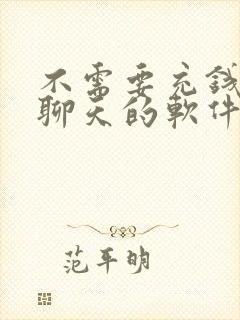 不需要充錢
聊天的軟件
范平明